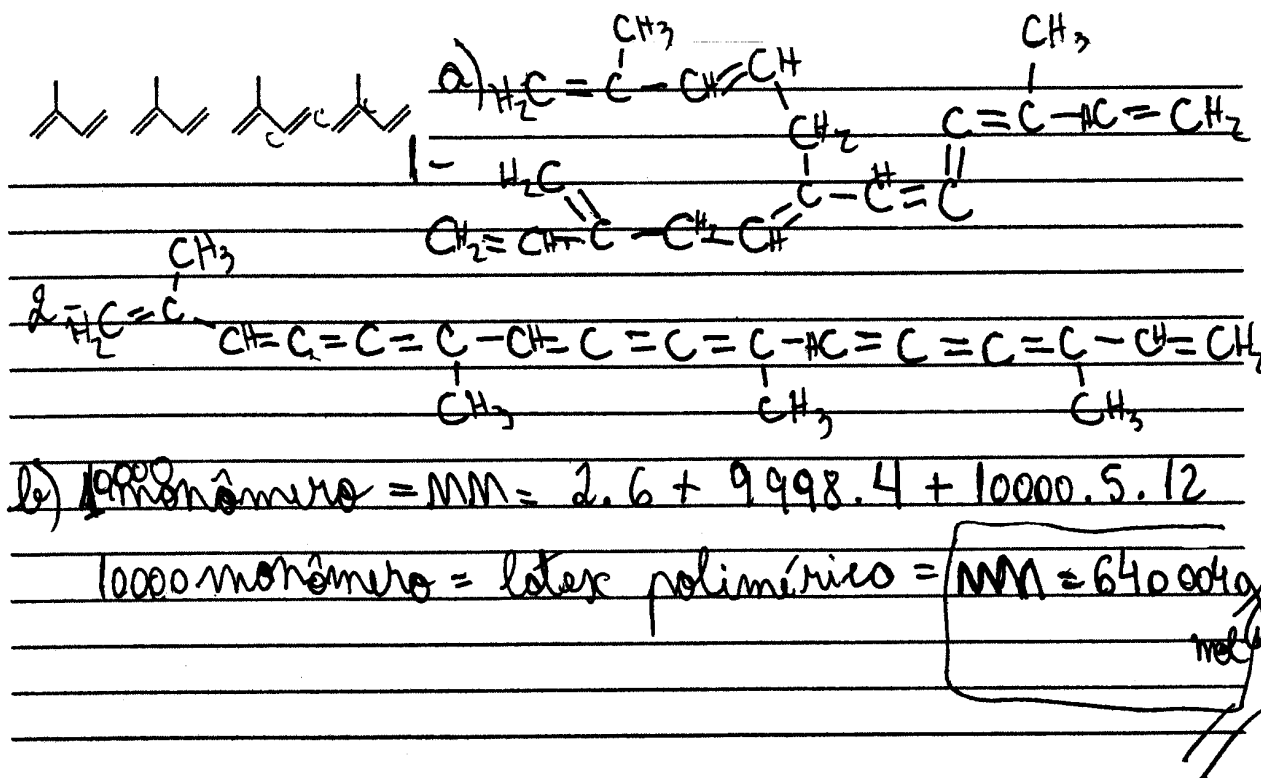 a) H₂C = C - CH = CH
CH₃
CH₂
CH₃
C = C - HC = CH₂
1-
H₂C
C - CH = C
CH₂ = CH - C - CH₂ - CH
2- H₂C = C
CH₃
CH = C = C = C - CH = C = C = C - HC = C = C = C - CH = CH₂
CH₃ CH₃ CH₃
b) 10000 monômero = MM = 2.6 + 9998.4 + 10000.5.12
10000 monômero = latex polimérico = MM = 640004g/mol